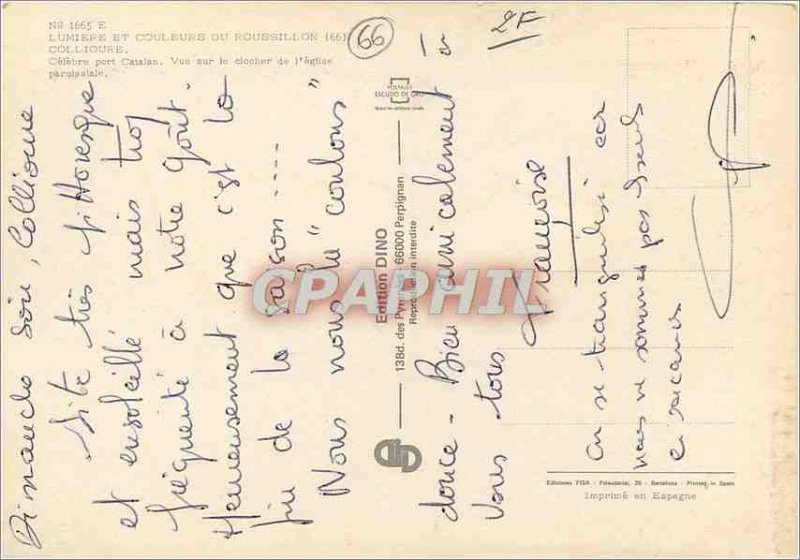 NS 1665 E
LUMIERE ET COULEURS DU ROUSSILLON (66)
COLLIOURE.
Célèbre port Catalan. Vue sur le clocher de l'église
paroissiale.
66
2F
POSTALES
ESCUDO DE ORO
Dimanche soir, Collioure
Site très pittoresque
et ensoleillé mais trop
fréquenté à notre goût.
Heureusement que c'est la
fin de la saison ....
Nous nous la "coulons"
douce - Bien amicalement à
vous tous
Françoise
on se tranquilise car
nous ne sommes pas seuls
en vacances
Edition DINO
138d. des Pyrénées 66000 Perpignan
Reproduction interdite
CPAPHIL
Ediciones FISA - Palaudarias, 26 - Barcelona - Printed in Spain
Imprimé en Espagne